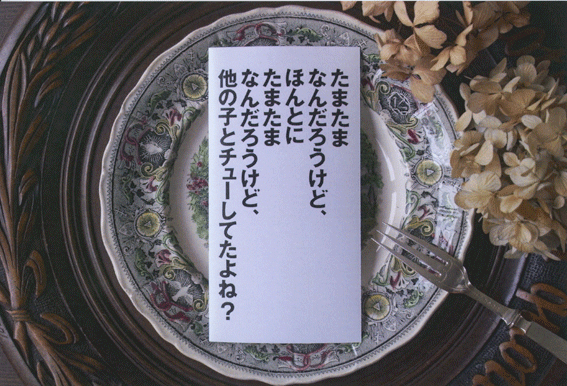 たまたま
なんだろうけど、
ほんとに
たまたま
なんだろうけど、
他の子とチューしてたよね？